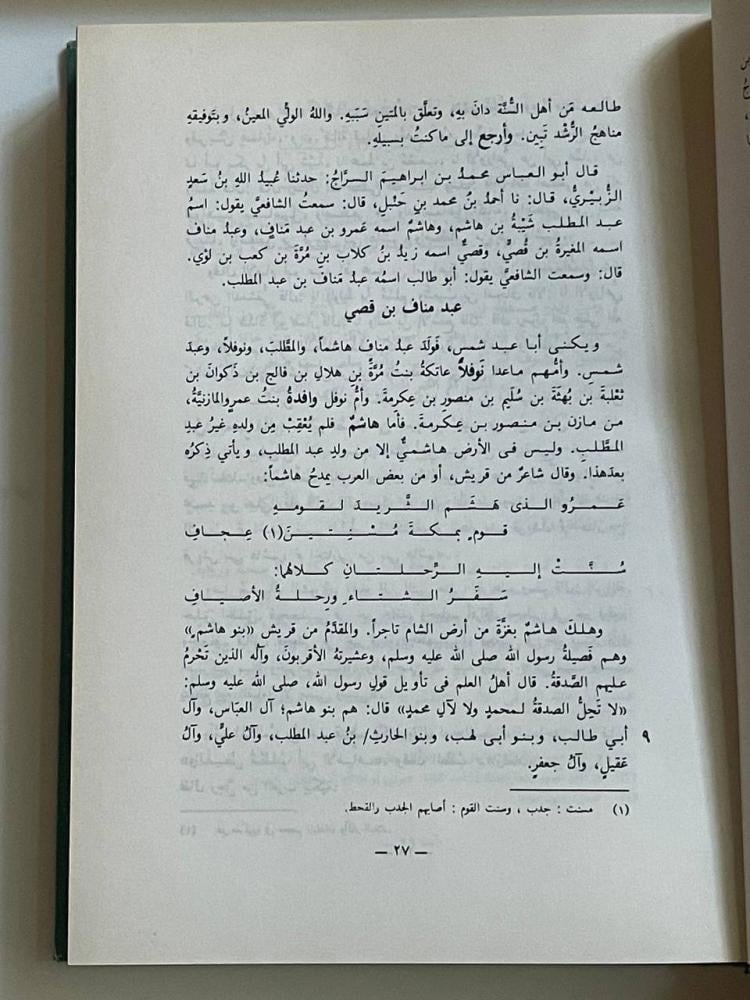 طالعه مَن أهل السُّنَّة دانَ بهِ، وتعلَّق بالمتين سَبَبَهِ. واللهُ الولُّي المعينُ، وبتَوفيقهِ
مناهجُ الرُّشد تَبِين. وأرجع إلى ماكنتُ بسبيلهِ.
قال أبو العباس محمدُ بن ابراهيمَ السرَّاجُ: حدثنا عُبيدُ اللهِ بنُ سَعدٍ
الزُّبيْريُّ، قال: نا أحمدُ بنُ محمد بن حَنْبلٍ، قال: سمعتُ الشافعيَّ يقول: اسمُ
عبد المطلب شَيْبَةُ بن هاشم، وهاشمٌ اسمه عَمرو بن عبد مَنافٍ، وعبدُ مناف
اسمه المغيرةُ بن قُصيٍّ، وقصيٌّ اسمه زيدُ بنُ كلاب بن مُرَّةَ بن كعب بن لؤي.
قال: وسمعت الشافعيَّ يقول: أبو طالب اسمُه عبدُ مَنافَ بن عبد المطلب.
عبد مناف بن قصي
ويكنى أبا عبد شمس، فَولَدَ عبدُ منافٍ هاشماً، والمطَّلبَ، ونوفلاً، وعبدَ
شمسٍ. وأمُّهم ماعدا نَوفلاً عاتكةُ بنتُ مُرَّةَ بن هلالِ بن فالجِ بن ذَكوانَ بن
ثعْلبةَ بن بُهثَةَ بن سُلَيم بن منصورِ بن عِكرِمةَ. وأمُّ نوفل وافدةُ بنت عمروٍالمازنيَّةُ،
من مازن بن منصور بن عِكرمةَ. فأما هاشمٌ فلم يُعْقِبْ مِن ولدِهِ غيرُ عبدِ
المطَّلبِ. وليس فى الأرض هاشميٌّ إلا من ولدِ عبد المطلب، ويأتي ذِكرُه
بعدَهذا. وقال شاعرٌ من قريش، أو من بعض العرب يمدحُ هاشماً:
عَمرُو الذى هَشَم الثَّريدَ لقومهِ
قومٍ بمكةَ مُسْنِتينَ(١) عِجافِ
سُنَّتْ إليهِ الرِّحلتانِ كلاهُما:
سَفَرُ الشتاءِ ورِحلةُ الأصيافِ
وهلكَ هاشمٌ بغزَّةَ من أرض الشام تاجراً. والمقدَّمُ من قريش «بنو هاشم»
وهم فَصيلةُ رسول الله صلى الله عليه وسلم، وعشيرتهُ الأقربونَ، وآله الذين تَحْرمُ
عليهم الصَّدقةُ. قال أهلُ العلم فى تأويل قولِ رسول الله، صلى الله عليه وسلم:
«لا تَحِلُّ الصدقةُ لمحمدٍ ولا لآلِ محمدٍ» قال: هم بنو هاشمٍ؛ آل العبّاس، وآل
٩ أبي طالب، وبنو أبى لهب، وبنو الحارثِ/ بنُ عبد المطلب، وآلُ عليٍّ، وآلُ
عَقيلٍ، وآلُ جعفرٍ.
(١) مسنت : جدب ، وسنت القوم : أصابهم الجدب والقحط.
— ٢٧ —